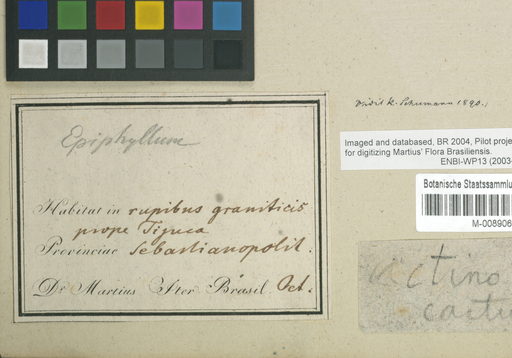 Epiphyllum
Habitat in rupibus graniticis
prope Tijuca
Provinciae Sebastianopolit.
Dr Martius Iter Brasil Oct.
vidit K. Schumann 1890.
Imaged and databased, BR 2004, Pilot proje
for digitizing Martius' Flora Brasiliensis.
ENBI-WP13 (2003-
Botanische Staatssammlu
M-008906
Actino
cactu